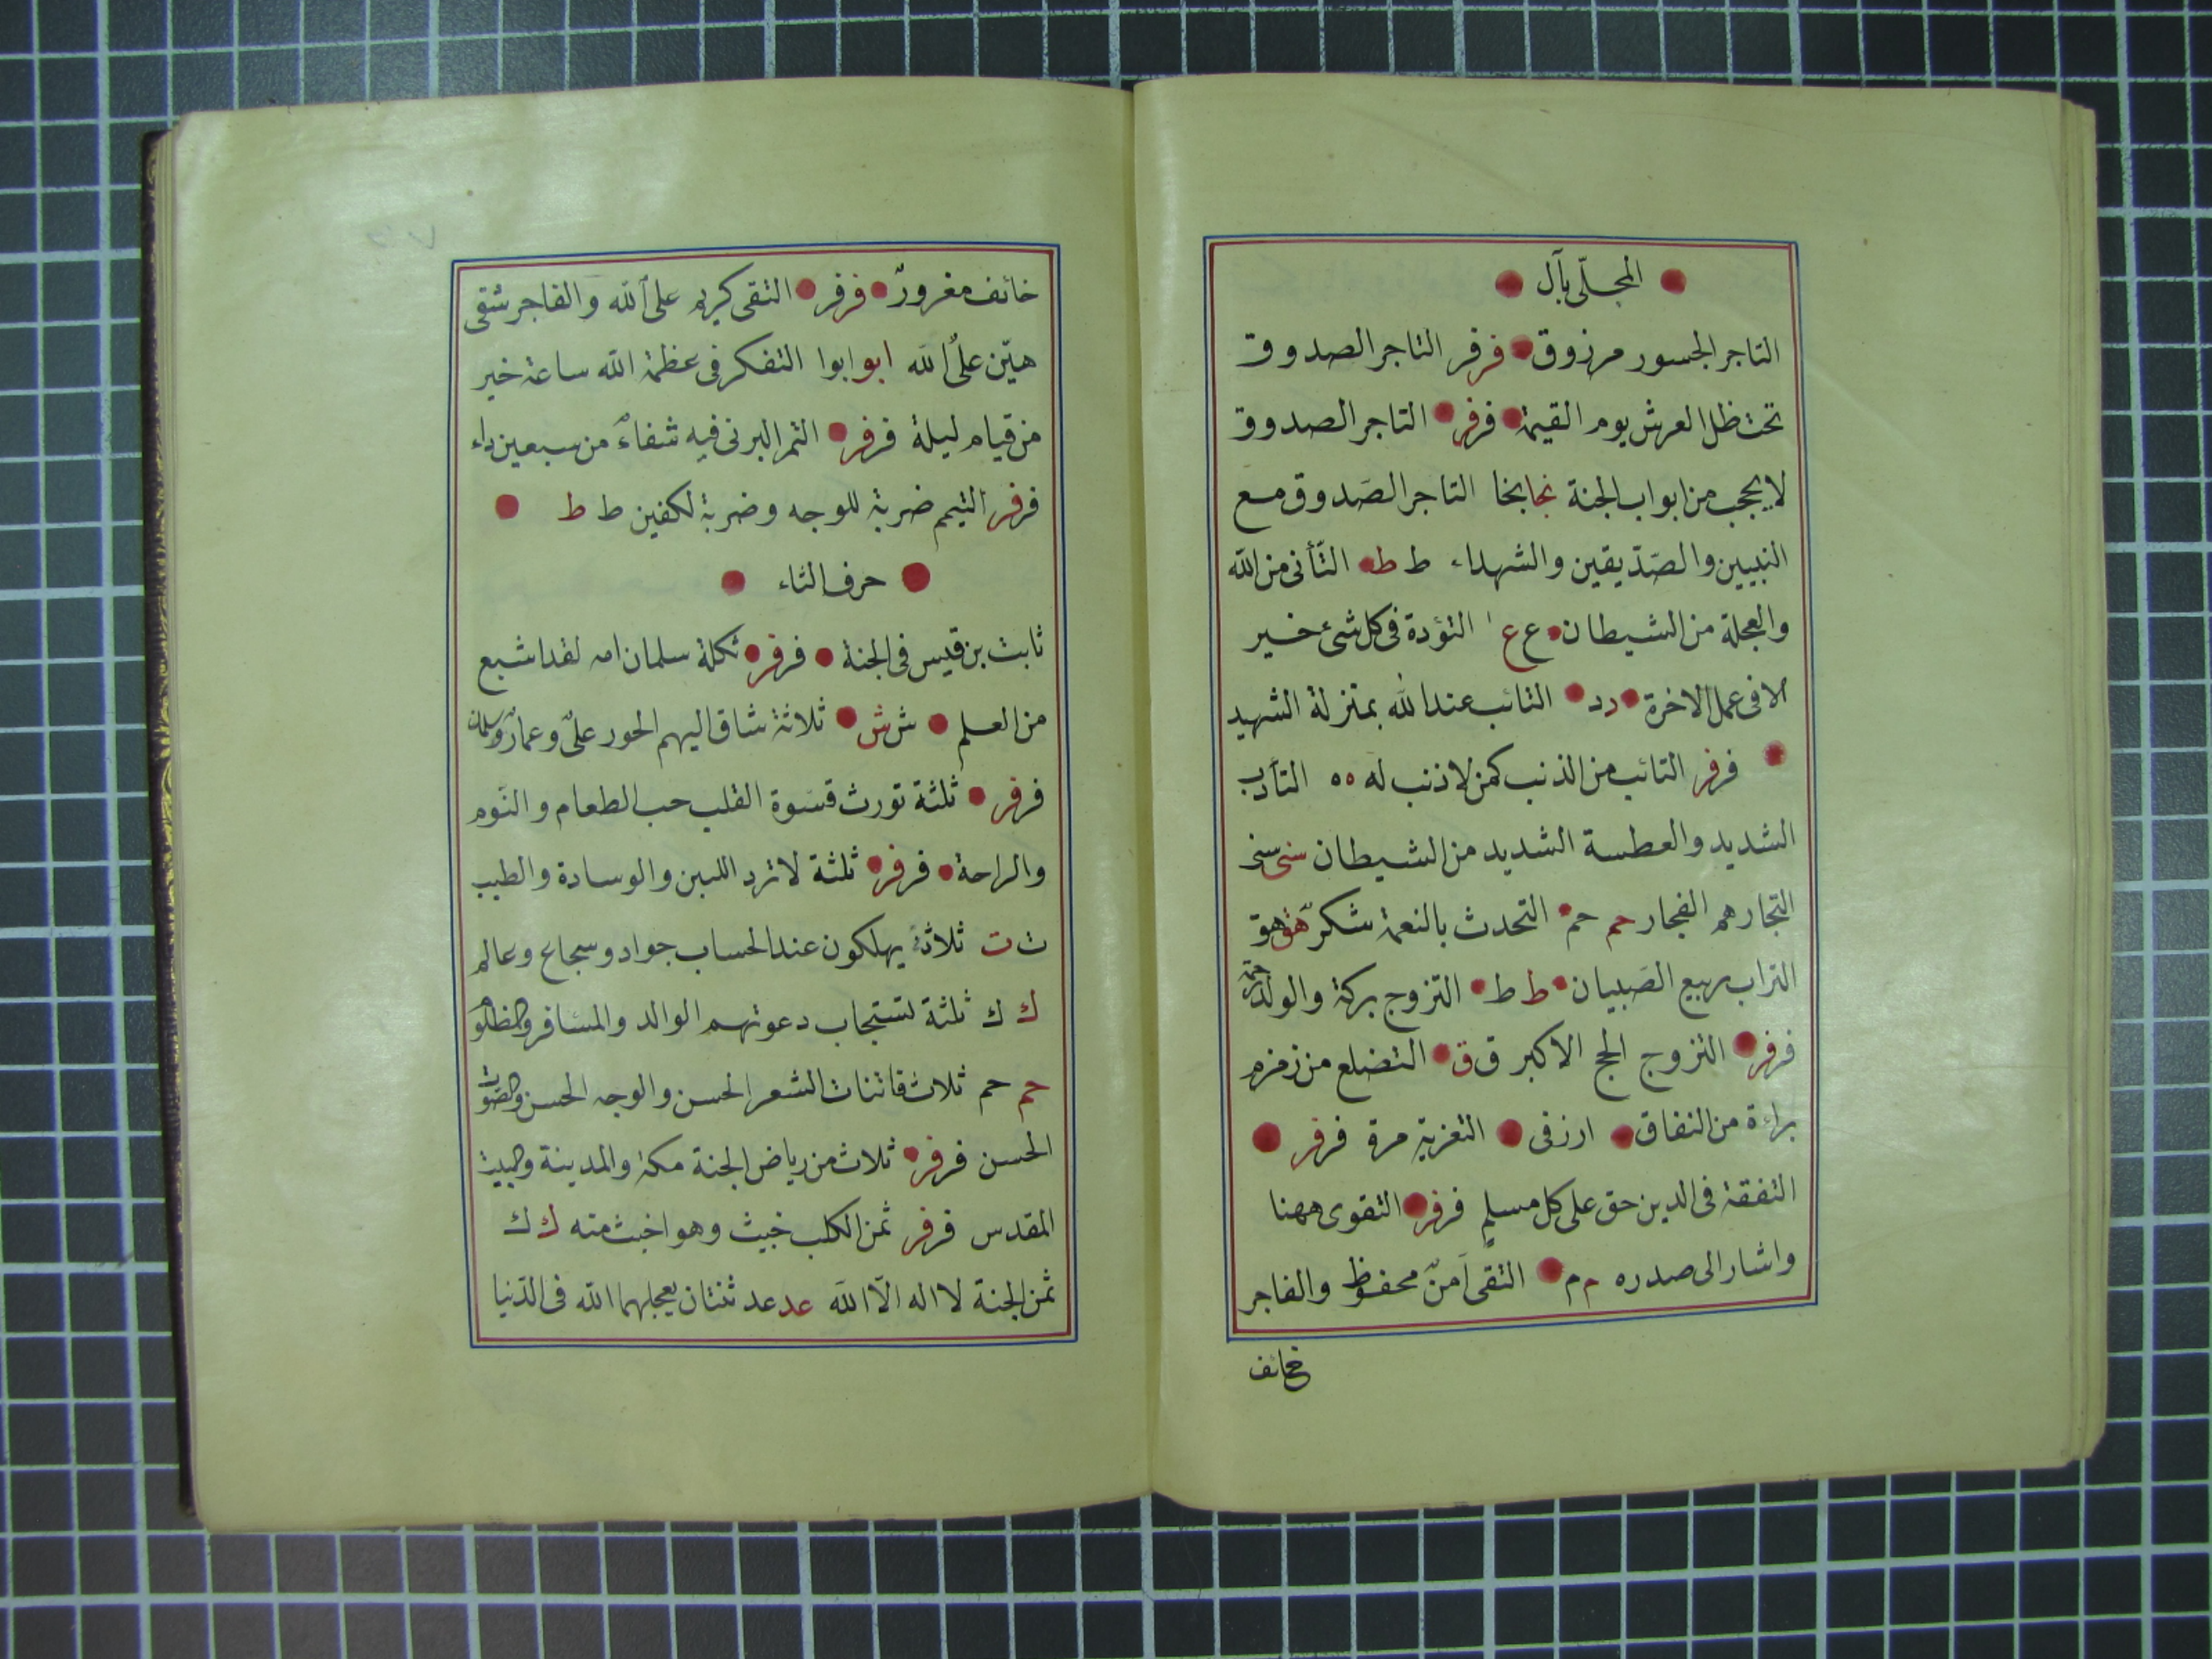 المجلّى بآل
التاجر الجسور مرزوق فر فر التاجر الصدوق
تحت ظل العرش يوم القيمة فر فر التاجر الصدوق
لا يحجب من ابواب الجنة نجا بخا التاجر الصَدوق مع
النبيين والصَدّيقين والشهداء ط ط التَأنى من الله
والعجلة من الشيطان ع ع التؤدة فى كل شئ خير
الا فى عمل الاخرة د د التائب عند الله بمنزلة الشهيد
فر فر التائب من الذنب كمن لا ذنب له ه ه
الشديد والعطسة الشديد من الشيطان سنى سنى
التجار هم الفجار حم حم التحدث بالنعمة شكر هق هق
التراب ربيع الصَبيان ط ط التزوج بركة والولد
فر فر التزوج الحج الاكبر ق ق التضلع من زمزم
براءة من النفاق ارزقى التعزية مرة فر فر
التفقة فى الدين حق على كل مسلمٍ فر فر التقوى ههنا
واشار الى صدره م م التقى آمنٌ محفوظ والفاجر
خائف
خائف مغرورٌ فر فر التقى كريم على الله والفاجر شقى
هيّن على الله ابو ابوا التفكر فى عظمة الله ساعة خير
من قيام ليلة فر فر التمر البرنى فيه شفاءٌ من سبعين داء
فر فر التيمم ضربة للوجه وضربة لكفين ط ط
حرف الثاء
ثابت بن قيس فى الجنة فر فر ثكلة سلمان امه لقد اشبع
من العلم ش ش ثلاثة شاق اليهم الحور علىٌ وعمارٌ وسلمان
فر فر ثلثة تورث قسَوة القلب حب الطعام والنَوم
والراحة فر فر ثلثة لا ترد اللبن والوسادة والطيب
ت ت ثلاثة يهلكون عند الحساب جواد وسجاع وعالم
ك ك ثلثة لتستجاب دعوتهم الوالد والمسافر والمظلوم
حم حم ثلاث فاتنات الشعر الحسن والوجه الحسن والصَوت
الحسن فر فر ثلاث من رياض الجنة مكة والمدينة والبيت
المقدس فر فر ثمن الكلب خبيث وهو اخبث منه ك ك
ثمن الجنة لا اله الَا الله عد عد ثنتان يعجلهما الله فى الدّنيا